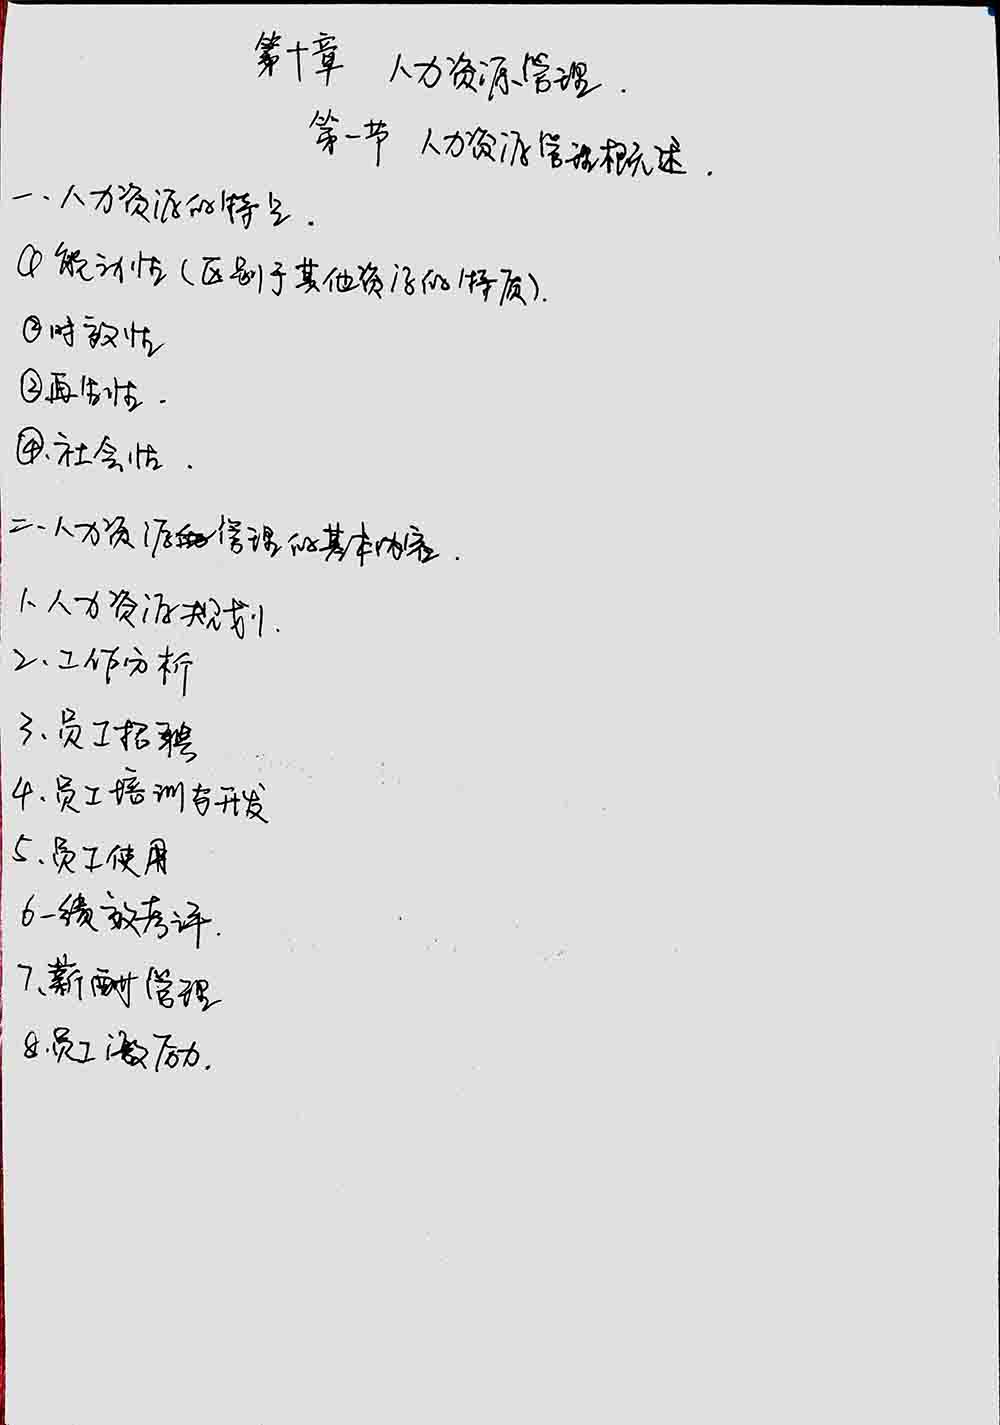 第十章 人力资源管理.
第一节 人力资源管理概述.
一、人力资源的特点.
① 能动性(区别于其他资源的特质).
②时效性
③再生性.
④.社会性.
二、人力资源管理的基本内容.
1、人力资源规划.
2、工作分析
3、员工招聘
4、员工培训与开发
5、员工使用
6-绩效考评.
7、薪酬管理
8.员工激励.